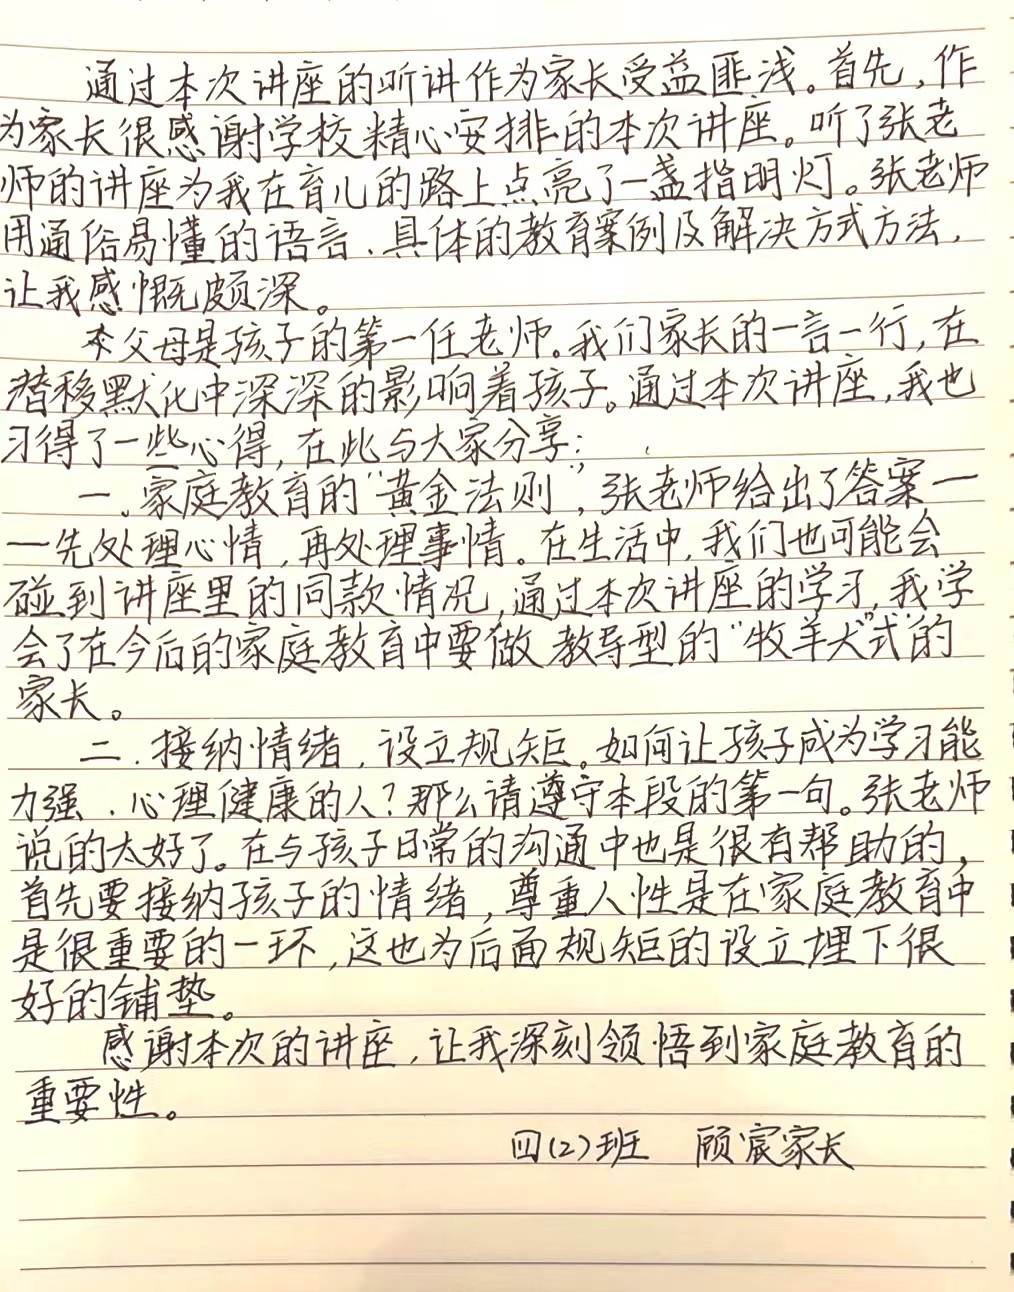 通过本次讲座的听讲作为家长受益匪浅。首先，作
为家长很感谢学校精心安排的本次讲座。听了张老
师的讲座为我在育儿的路上点亮了一盏指明灯。张老师
用通俗易懂的语言、具体的教育案例及解决方式方法，
让我感慨颇深。
父母是孩子的第一任老师。我们家长的一言一行，在
潜移默化中深深的影响着孩子。通过本次讲座，我也
习得了一些心得，在此与大家分享：
一、家庭教育的“黄金法则”，张老师给出了答案—
—先处理心情，再处理事情。在生活中，我们也可能会
碰到讲座里的同款情况，通过本次讲座的学习，我学
会了在今后的家庭教育中要做教导型的“牧羊犬”式的
家长。
二、接纳情绪，设立规矩。如何让孩子成为学习能
力强、心理健康的人？那么请遵守本段的第一句。张老师
说的太好了。在与孩子日常的沟通中也是很有帮助的，
首先要接纳孩子的情绪，尊重人性是在家庭教育中
是很重要的一环，这也为后面规矩的设立埋下很
好的铺垫。
感谢本次的讲座，让我深刻领悟到家庭教育的
重要性。
四(2)班 顾宸家长